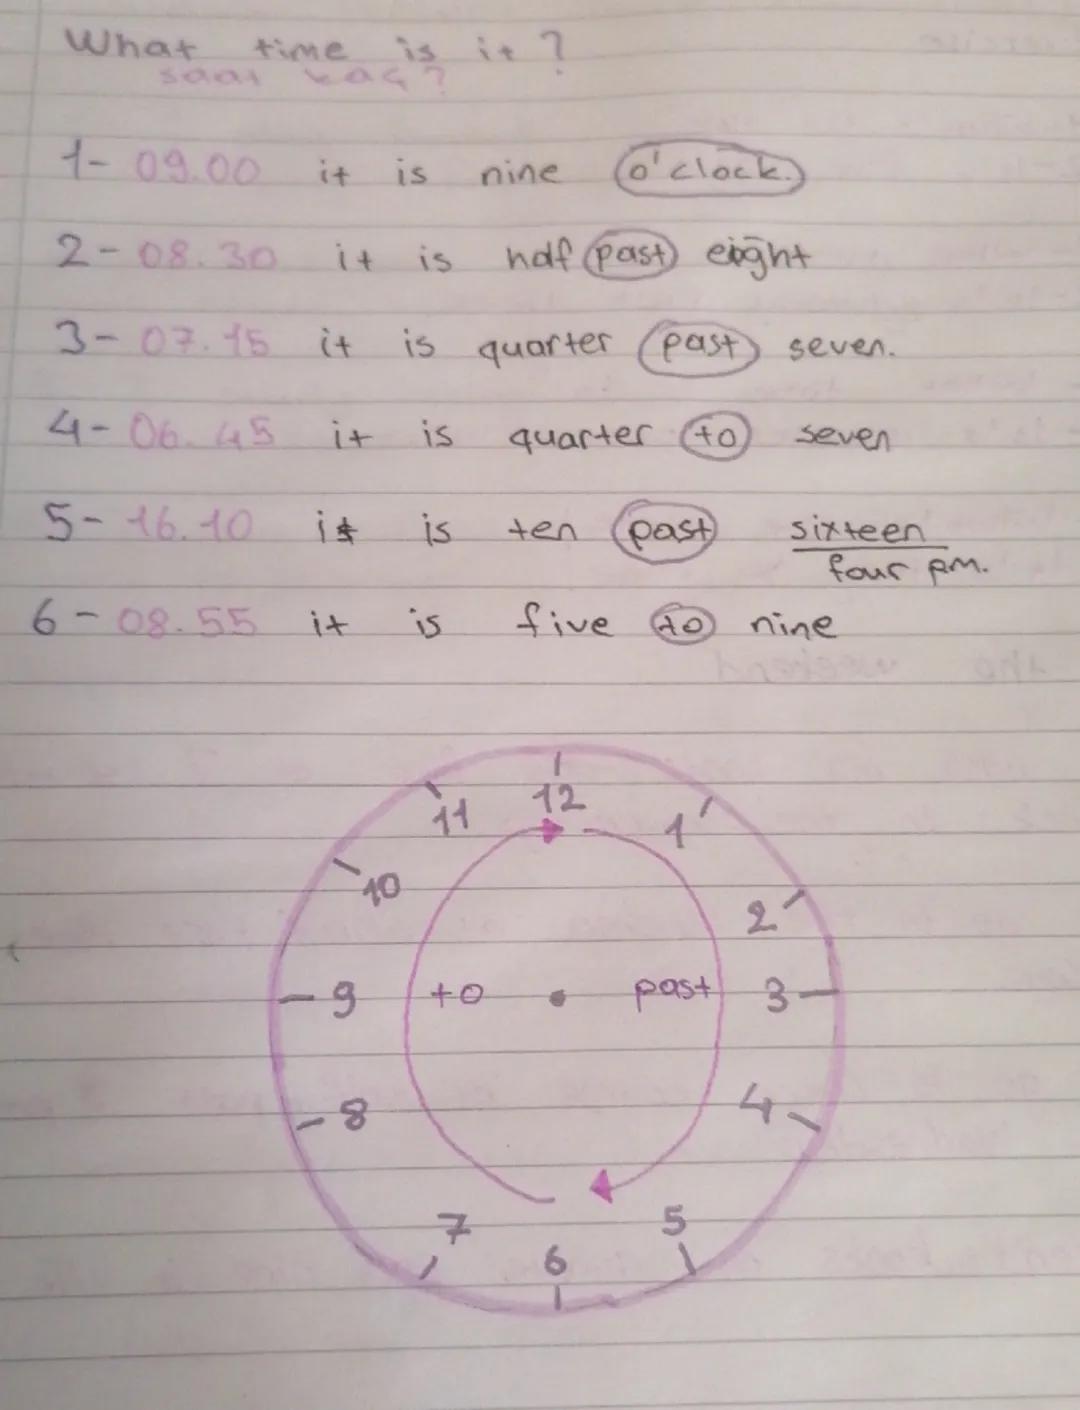 What time is it?
saat kaç?
1- 09.00 it is nine o'clock.
2- 08.30 it is half past eight
3- 07.15 it is quarter past seven.
4- 06.45 it is quarter to seven
5- 16.10 it is ten past sixteen
four p.m.
6- 08.55 it is five to nine
12
11 1
10
2
9 to past 3
8 4
7 5
6